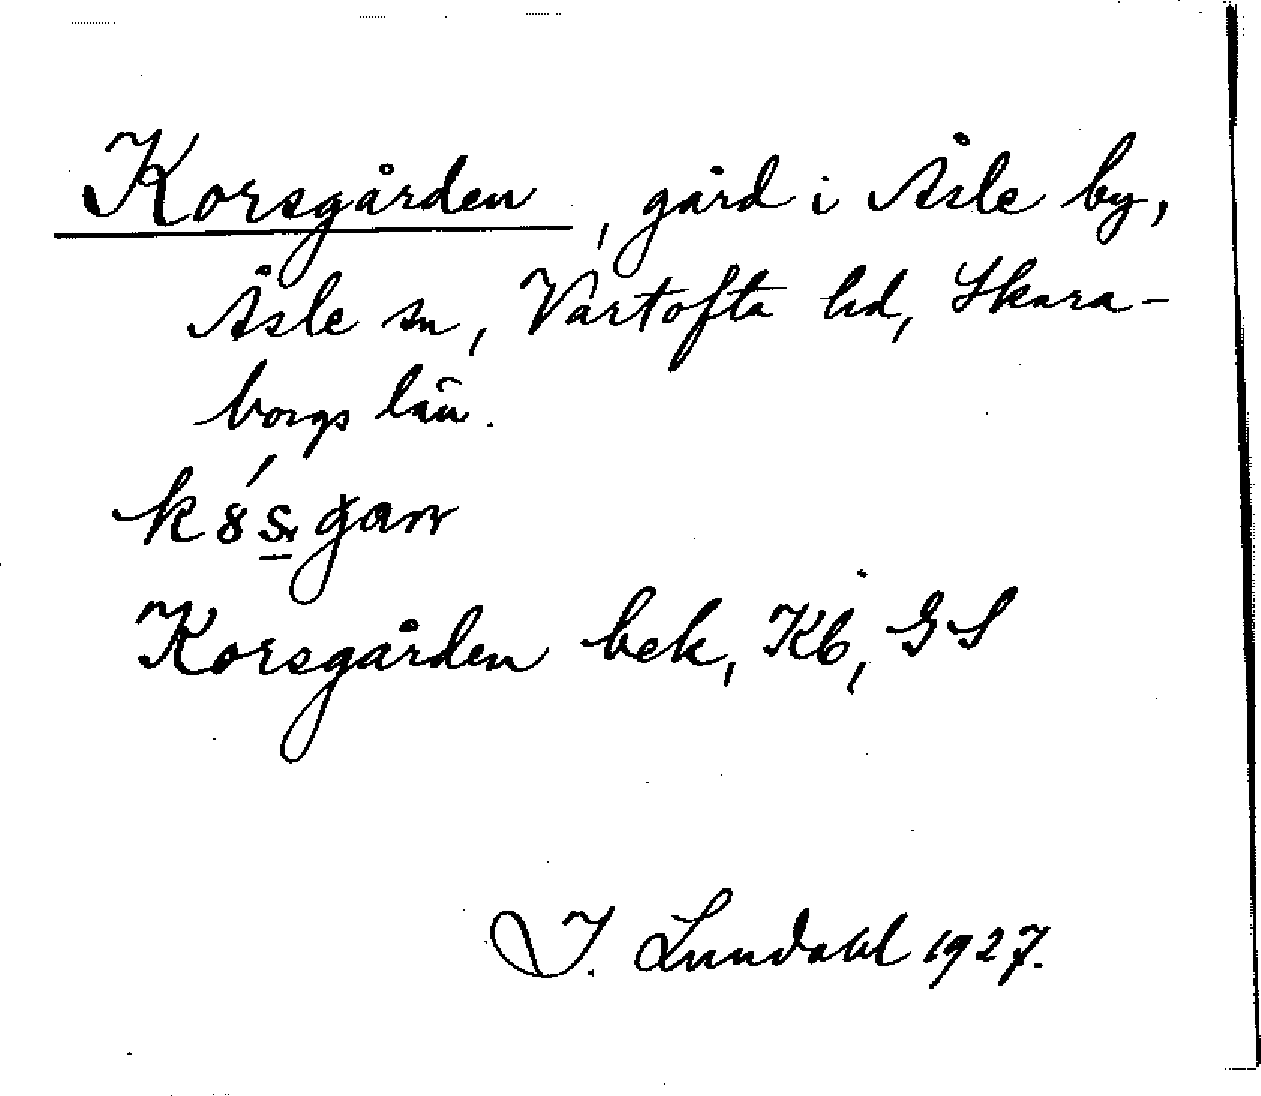 Korsgården, gård i Åsle by,
Åsle sn, Vartofta hd, Skara-
borgs län.
k8́s̠garr
Korsgården bek, Kb, GS
I. Lundahl 1927.